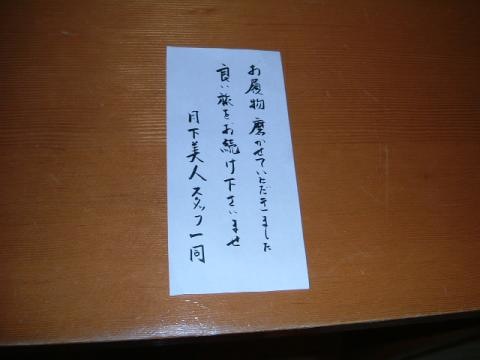 お履物 磨かせていただきました
良い旅をお続け下さいませ
月下美人スタッフ一同